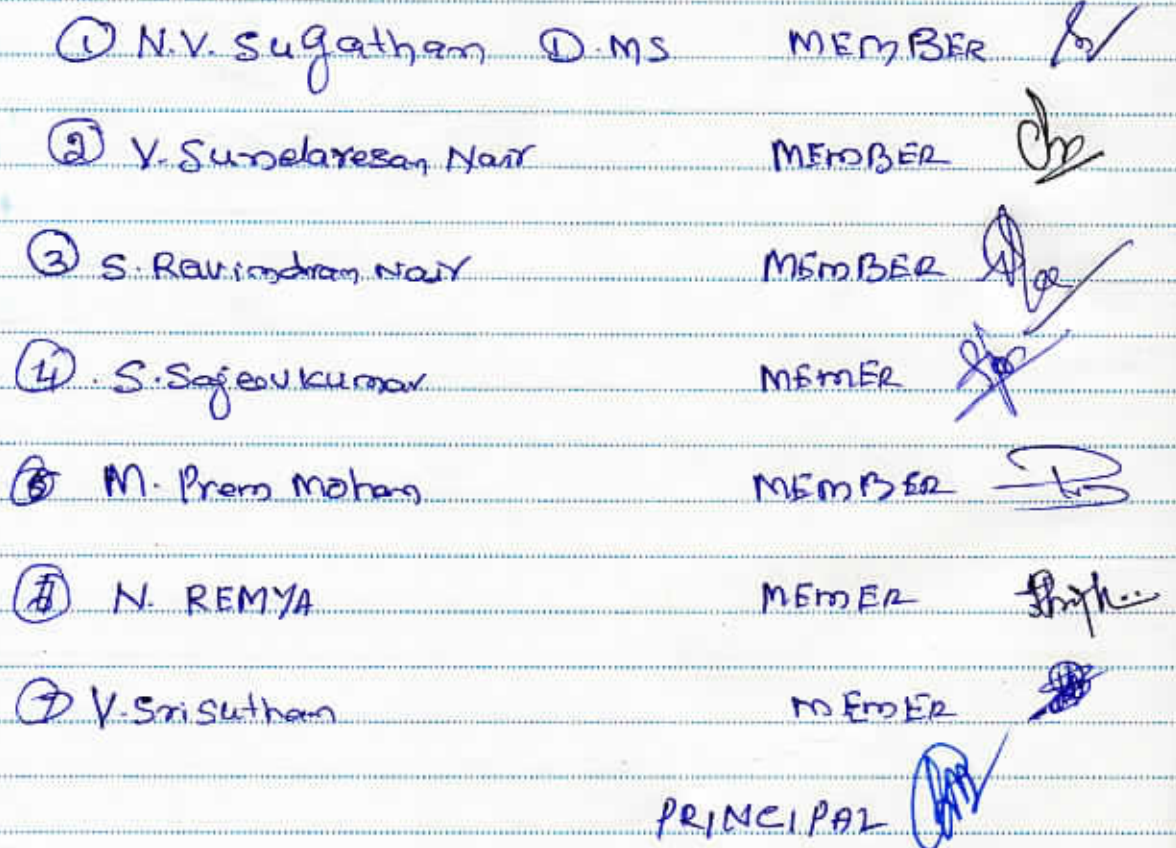 ① N.V. Sugathan D.MS MEMBER
② V. Sundaresan Nair MEMBER
③ S. Ravindran Nair MEMBER
④. S. Sajeevkumar MEMER
⑤ M. Prem Mohan MEMBER
N. REMYA MEMER
⑦ V. Srisuthan MEMER
PRINCIPAL